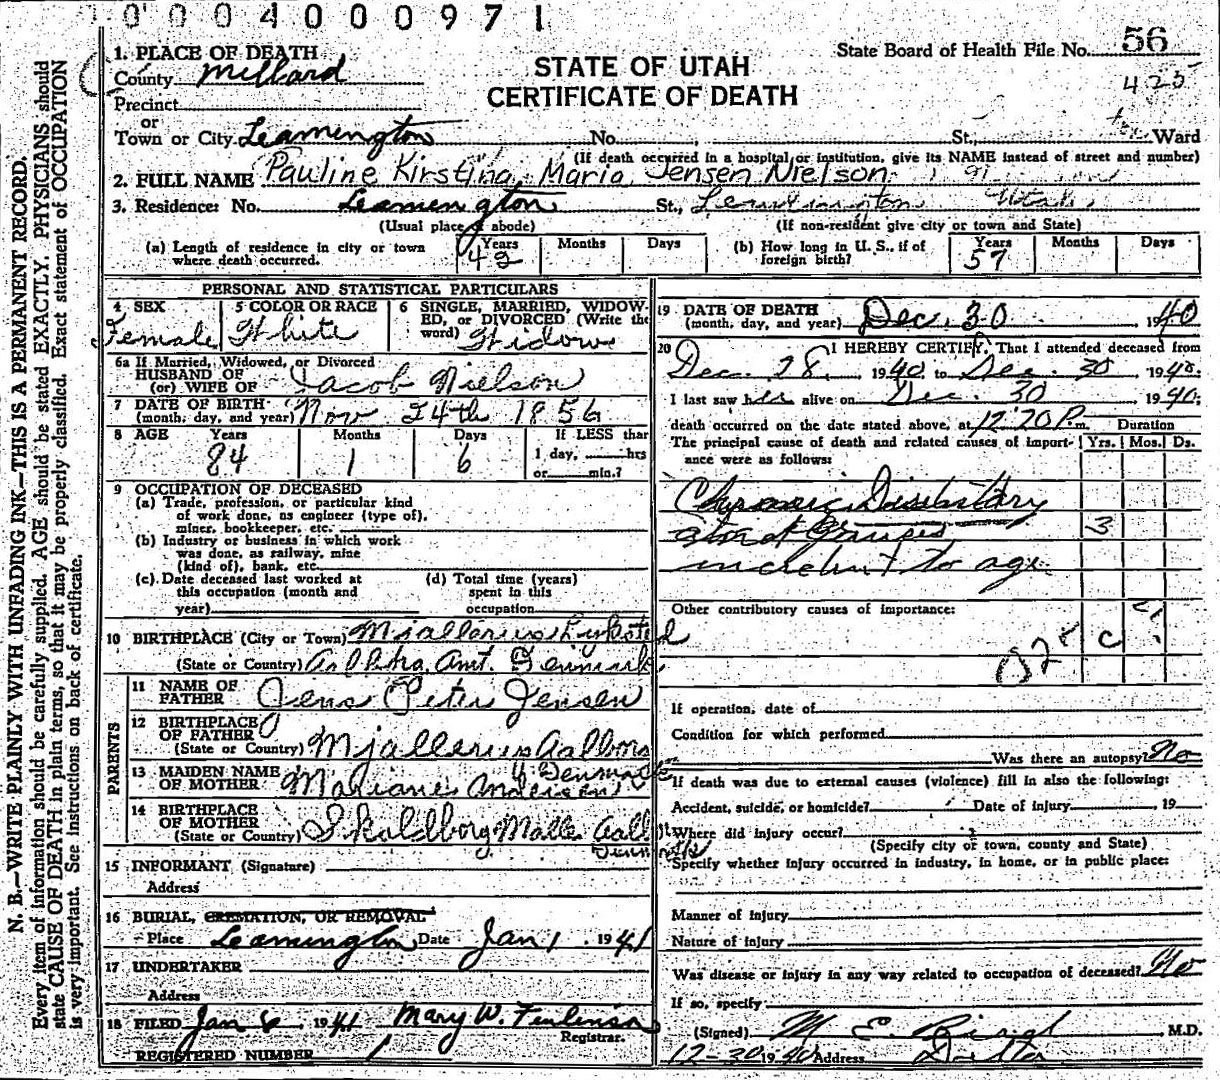 0004000971
1. PLACE OF DEATH
County Millard
Precinct
or
Town or City Leamington No. St., Ward
STATE OF UTAH
CERTIFICATE OF DEATH
State Board of Health File No. 56
425
(If death occurred in a hospital or institution, give its NAME instead of street and number)
2. FULL NAME Pauline Kirstina Maria Jensen Nielson
3. Residence: No. Leamington St., Leamington Utah
(Usual place of abode) (If non-resident give city or town and State)
(a) Length of residence in city or town where death occurred. Years 42 Months Days
(b) How long in U. S., if of foreign birth? Years 57 Months Days
PERSONAL AND STATISTICAL PARTICULARS
4 SEX Female
5 COLOR OR RACE White
6 SINGLE, MARRIED, WIDOWED, or DIVORCED (Write the word) Widow
6a If Married, Widowed, or Divorced
HUSBAND OF
(or) WIFE OF Jacob Nielson
7 DATE OF BIRTH
(month, day, and year) Nov 24th 1856
8 AGE Years 84 Months 1 Days 6 If LESS than 1 day, hrs or min.?
9 OCCUPATION OF DECEASED
(a) Trade, profession, or particular kind
of work done, as engineer (type of),
miner, bookkeeper, etc.
(b) Industry or business in which work
was done, as railway, mine
(kind of), bank, etc.
(c) Date deceased last worked at
this occupation (month and
year)
(d) Total time (years)
spent in this
occupation
10 BIRTHPLACE (City or Town) Mjallerius
(State or Country) Amt. Denmark
PARENTS
11 NAME OF
FATHER Jens Peter Jensen
12 BIRTHPLACE
OF FATHER
(State or Country) Mjallerius Aalborg
Denmark
13 MAIDEN NAME
OF MOTHER Mariane Andersen
14 BIRTHPLACE
OF MOTHER
(State or Country) Skoldborg Malle Aalb
Denmark
15 INFORMANT (Signature)
Address
16 BURIAL, CREMATION, OR REMOVAL
Place Leamington Date Jan 1, 1941
17 UNDERTAKER
Address
18 FILED Jan 6, 1941 Mary W. Finlinson
Registrar.
REGISTERED NUMBER 1
19 DATE OF DEATH
(month, day, and year) Dec. 30 1940
20 I HEREBY CERTIFY, That I attended deceased from
Dec. 28, 1940 to Dec. 30 1940.
I last saw her alive on Dec. 30 1940;
death occurred on the date stated above, at 12:20 P.m. Duration
The principal cause of death and related causes of importance were as follows: Yrs. Mos. Ds.
Chronic
3
incident to age
Other contributory causes of importance:
If operation, date of
Condition for which performed
Was there an autopsy? No
If death was due to external causes (violence) fill in also the following:
Accident, suicide, or homicide? Date of injury , 19
Where did injury occur?
(Specify city or town, county and State)
Specify whether injury occurred in industry, in home, or in public place:
Manner of injury
Nature of injury
Was disease or injury in any way related to occupation of deceased? No
If so, specify
(Signed) M. E. Bird , M.D.
12-30 1940 Address Delta
N. B.—WRITE PLAINLY WITH UNFADING INK—THIS IS A PERMANENT RECORD.
Every item of information should be carefully supplied. AGE should be stated EXACTLY. PHYSICIANS should
state CAUSE OF DEATH in plain terms, so that it may be properly classified. Exact statement of OCCUPATION
is very important. See instructions on back of certificate.